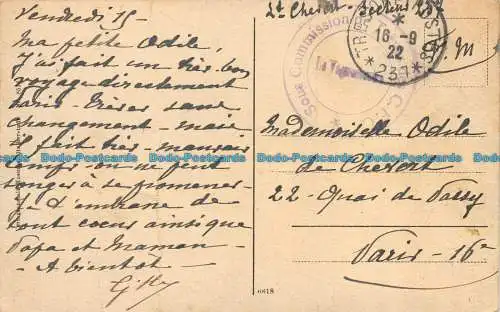 Vendredi 15 -
Ma petite Odile,
j'ai fait un très bon
voyage directement
Paris - Trèves sans
changement - mais
il fait très mauvais
on ne peut
songer à se promener -
Je t'embrasse de
tout cœur ainsi que
Papa et Maman -
- A bientôt -
Lt Chevert - Secteur 237
F. M
TRESOR ET POSTES
16-9
22
*237*
Sous Commission
Mademoiselle Odile
de Chevert
22 - Quai de Passy
Paris - 16e
6618
Bodo-Postcards Bodo-Postcards Bodo-Postcards Bodo-Postcards